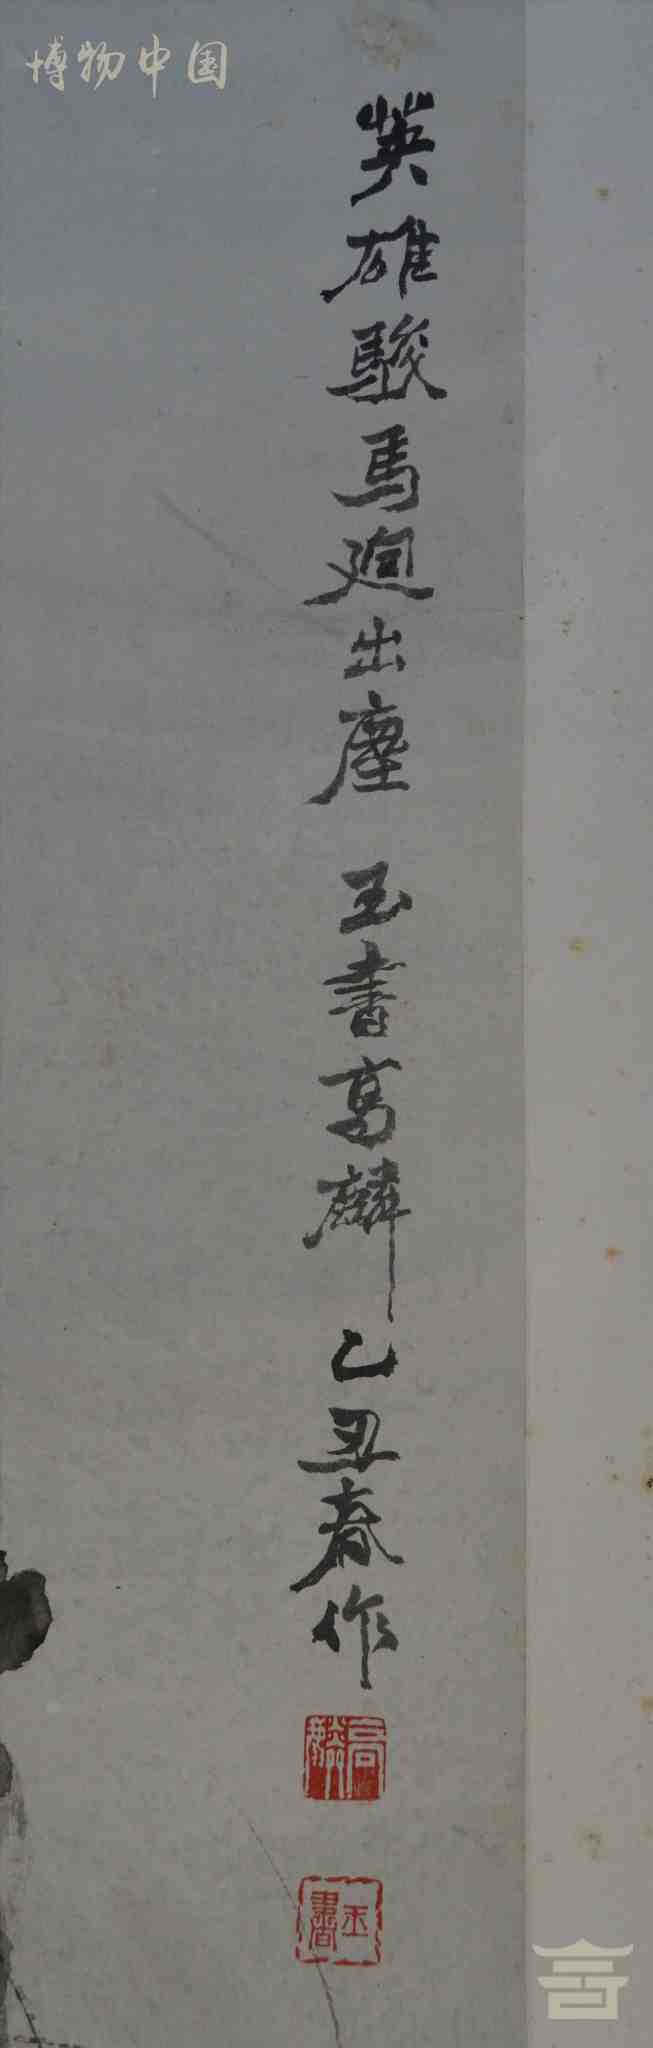 博物中国
英雄駿馬迥出塵 玉書高麟乙丑春作
高麟
玉書